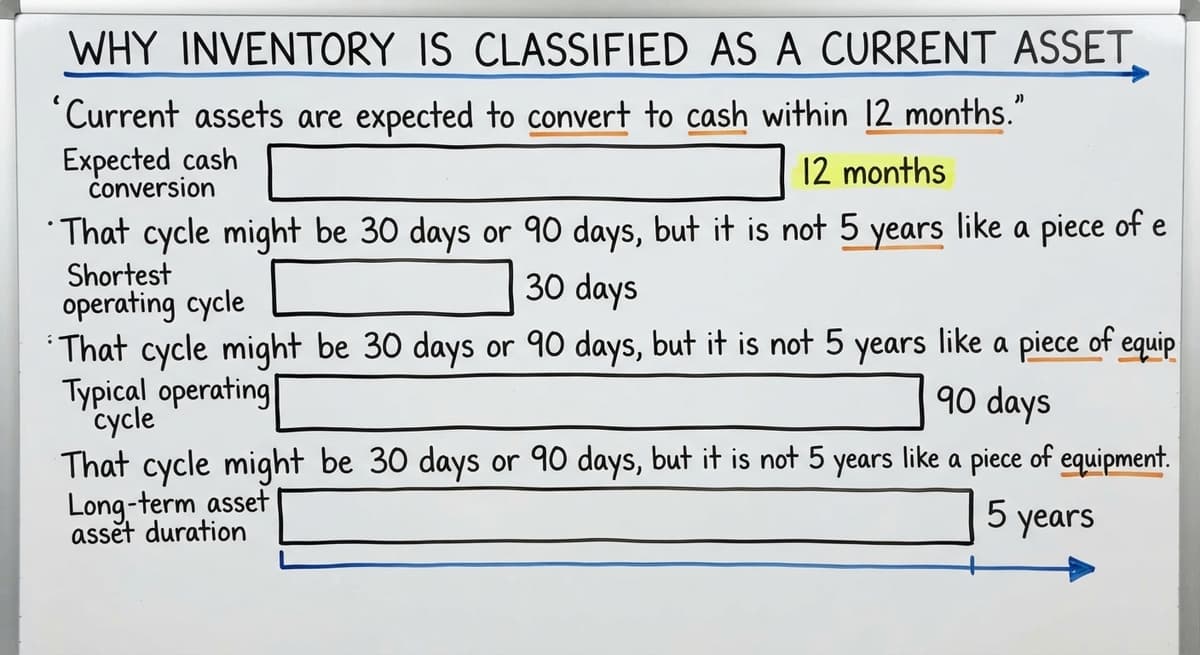 WHY INVENTORY IS CLASSIFIED AS A CURRENT ASSET
“Current assets are expected to convert to cash within 12 months.”
Expected cash
conversion
12 months
That cycle might be 30 days or 90 days, but it is not 5 years like a piece of e
Shortest
operating cycle
30 days
That cycle might be 30 days or 90 days, but it is not 5 years like a piece of equip
Typical operating
cycle
90 days
That cycle might be 30 days or 90 days, but it is not 5 years like a piece of equipment.
Long-term asset
asset duration
5 years